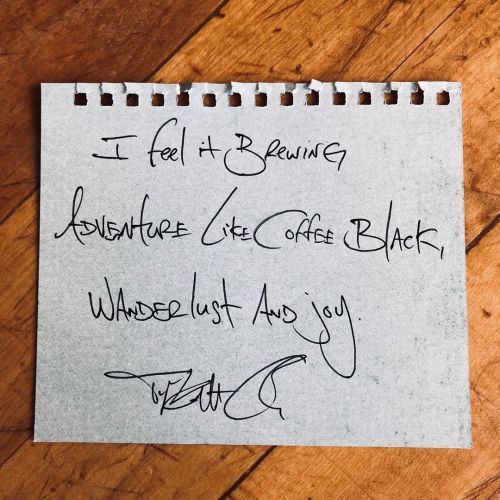 I feel it Brewing
Adventure Like Coffee Black,
Wanderlust And joy.